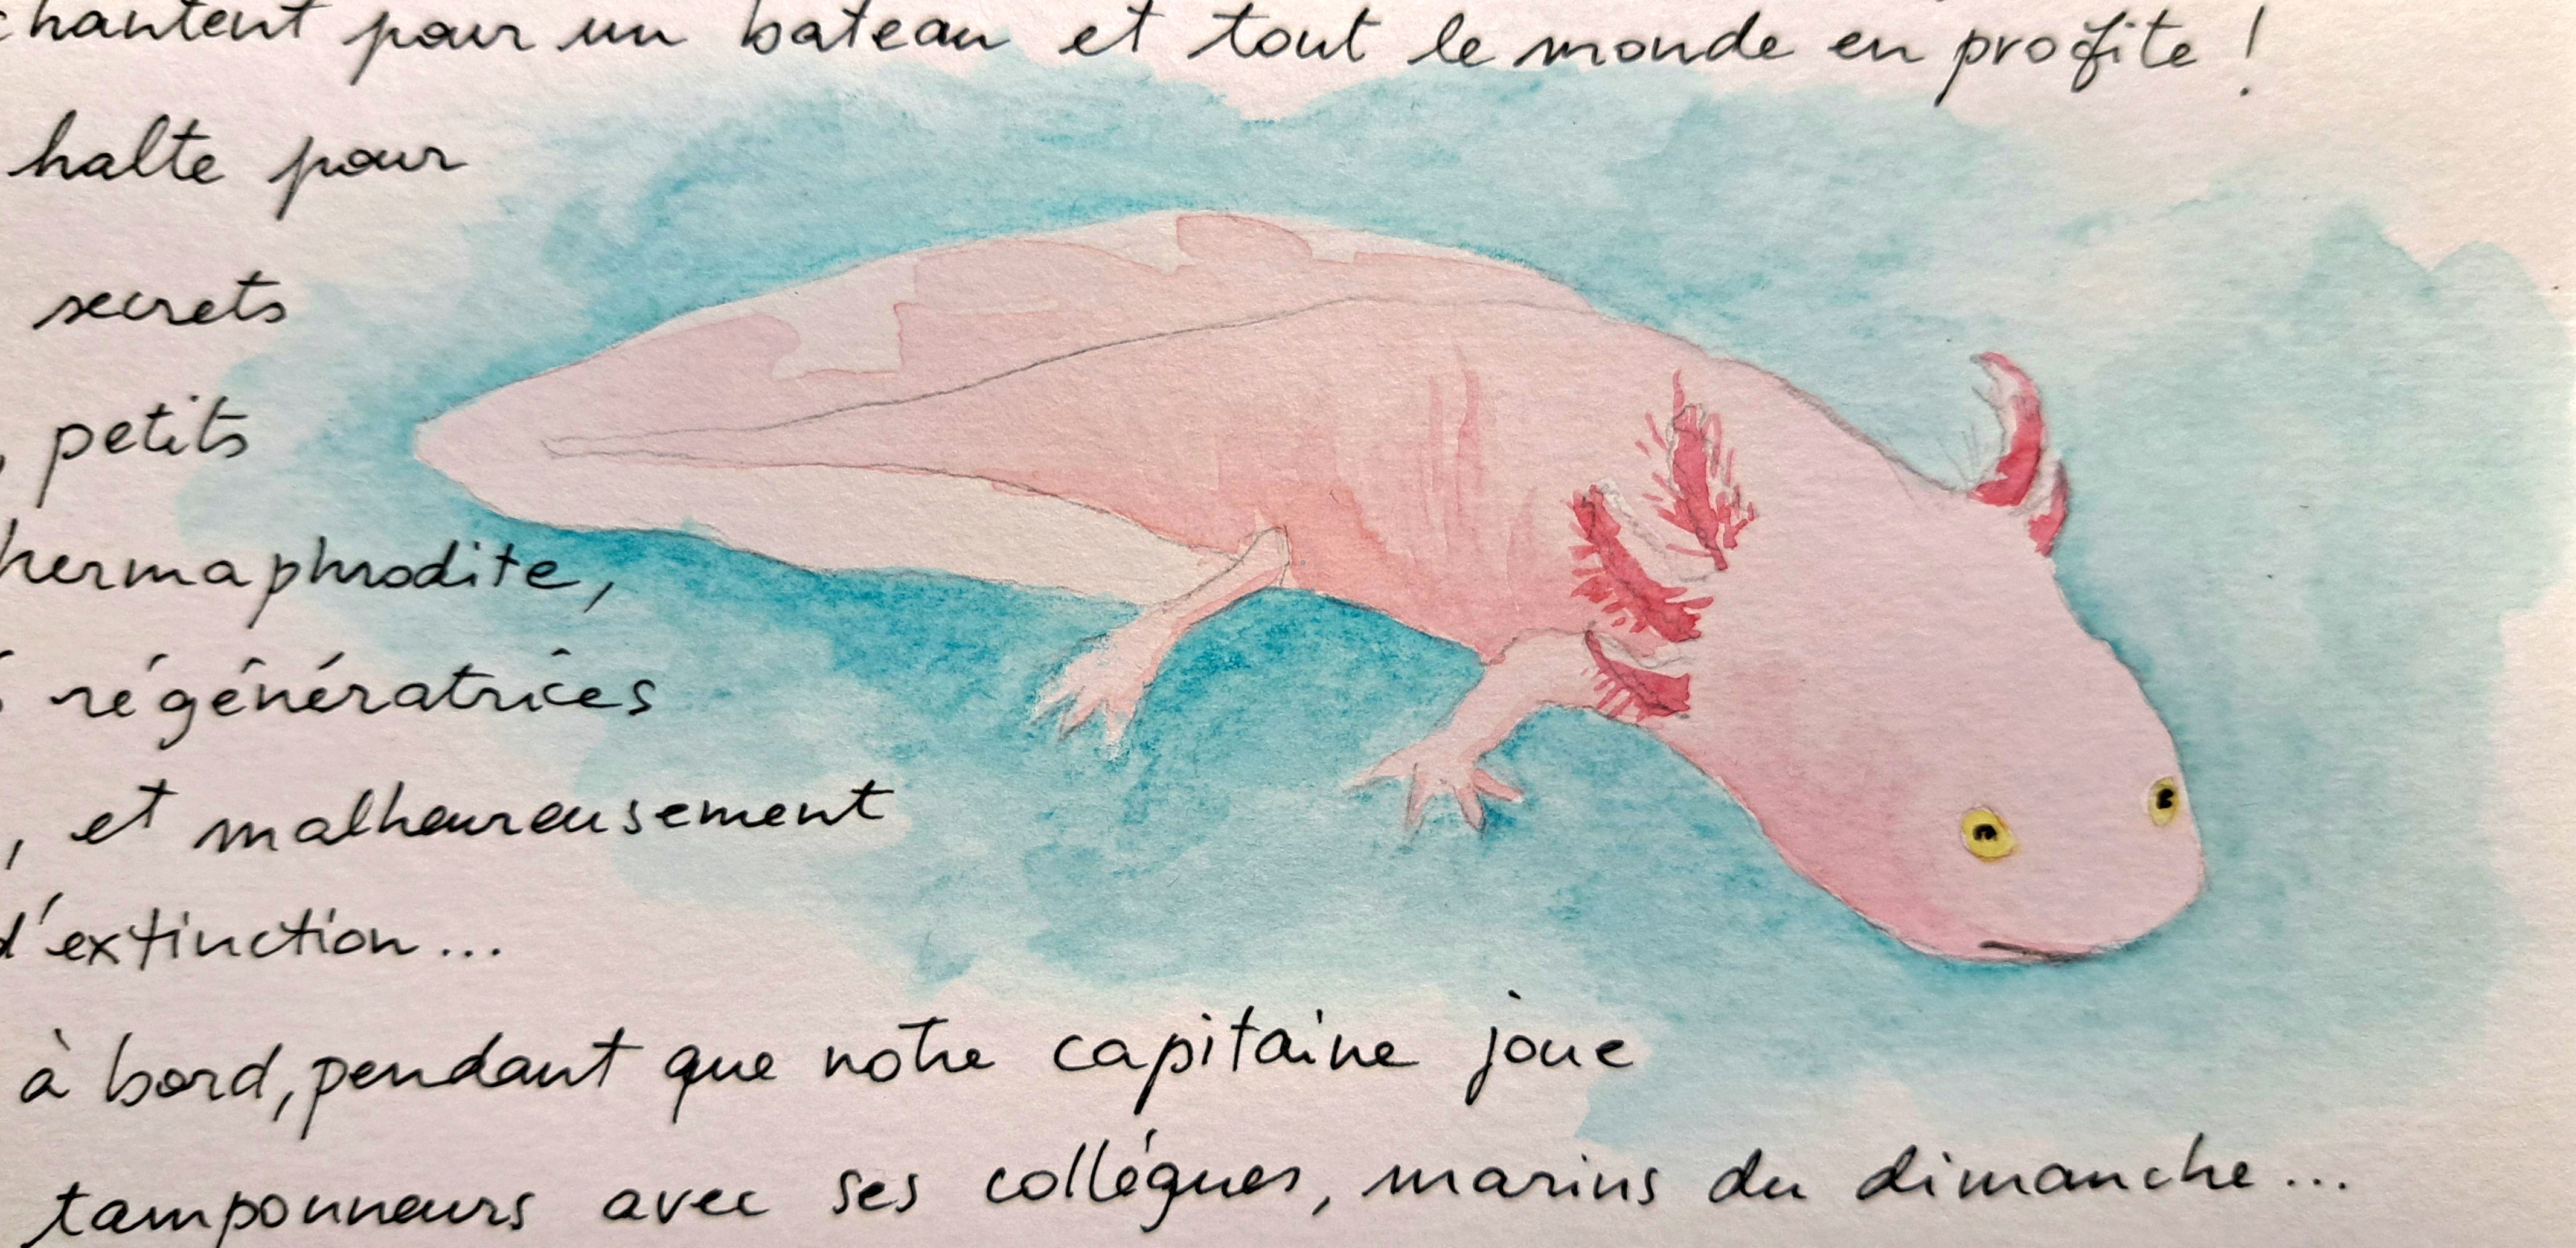 chantent pour un bateau et tout le monde en profite !
halte pour
secrets
, petits
hermaphrodite,
régénératrices
, et malheureusement
d'extinction...
à bord, pendant que notre capitaine joue
tamponneurs avec ses collégues, marins du dimanche...